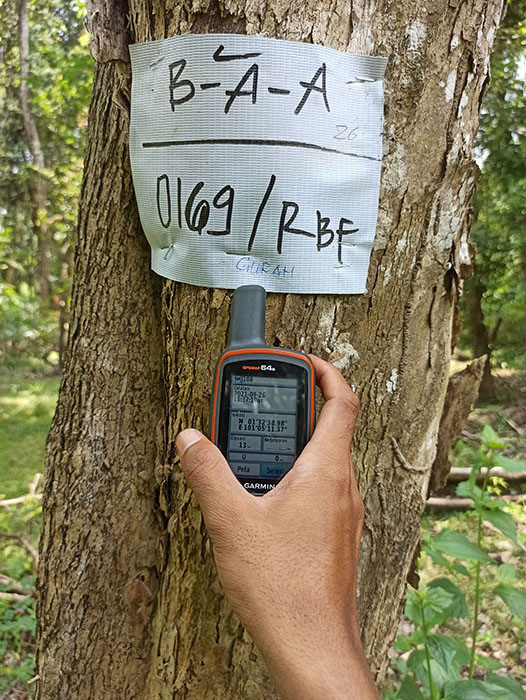 B-A-A
26
0169/RBF
GURAH
64s
Catatan
2021-09-26
Lokasi
N 01°32'18.98"
E 101°05'11.37"
Elevasi
Kedalaman
13
0
Peta
GARMIN